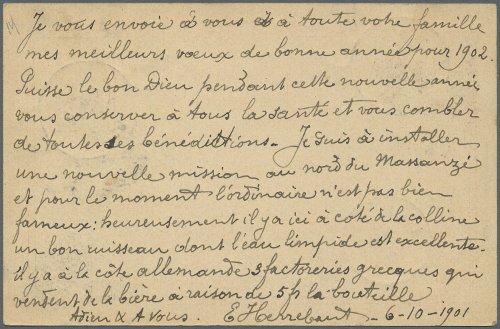 Je vous envoie à vous et à toute votre famille
mes meilleurs vœux de bonne année pour 1902.
Puisse le bon Dieu pendant cette nouvelle année
vous conserver à tous la santé et vous combler
de toutes les bénédictions. Je suis à installer
une nouvelle mission au nord du Massanzé
et pour le moment l'ordinaire n'est pas bien
fameux; heureusement il y a ici à côté de la colline
un bon ruisseau dont l'eau limpide est excellente.
il y a à la côte allemande 3 factoreries grecques qui
vendent de la bière à raison de 5 f la bouteille
Adieu & A vous. E Herrebaut 6-10-1901